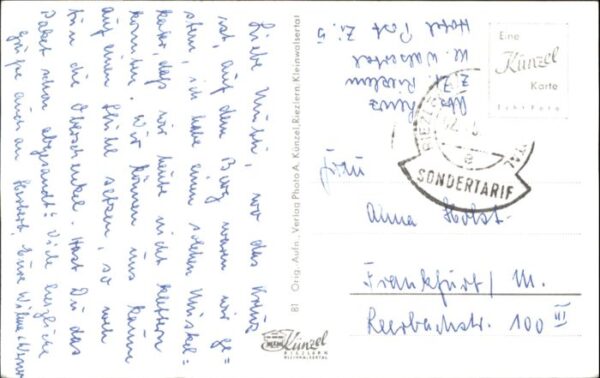 Liebe Mutti, wo das Kreuz
ist, auf dem Berg waren wir ge=
stern, ich habe einen solchen Muskel=
kater, daß wir heute nicht klettern
konnten. Wir können uns kaum
auf einen Stuhl setzen, so weh
tun die Oberschenkel. Hast Du das
Paket schon abgesandt? Viele herzliche
Grüße auch an Herbert, Eure Wilma
81 Orig. Aufn., Verlag Photo A. Künzel, Riezlern, Kleinwalsertal
Künzel
RIEZLERN
KLEINWALSERTAL
Abs.
z. Zt. Riezlern
Kl. Walsertal
Hotel Post Zi. 5
Eine
Künzel
Karte
Echt Foto
RIEZLE
e
SONDERTARIF
Frau
Anna Holst
Frankfurt / M.
Leerbachstr. 100 III